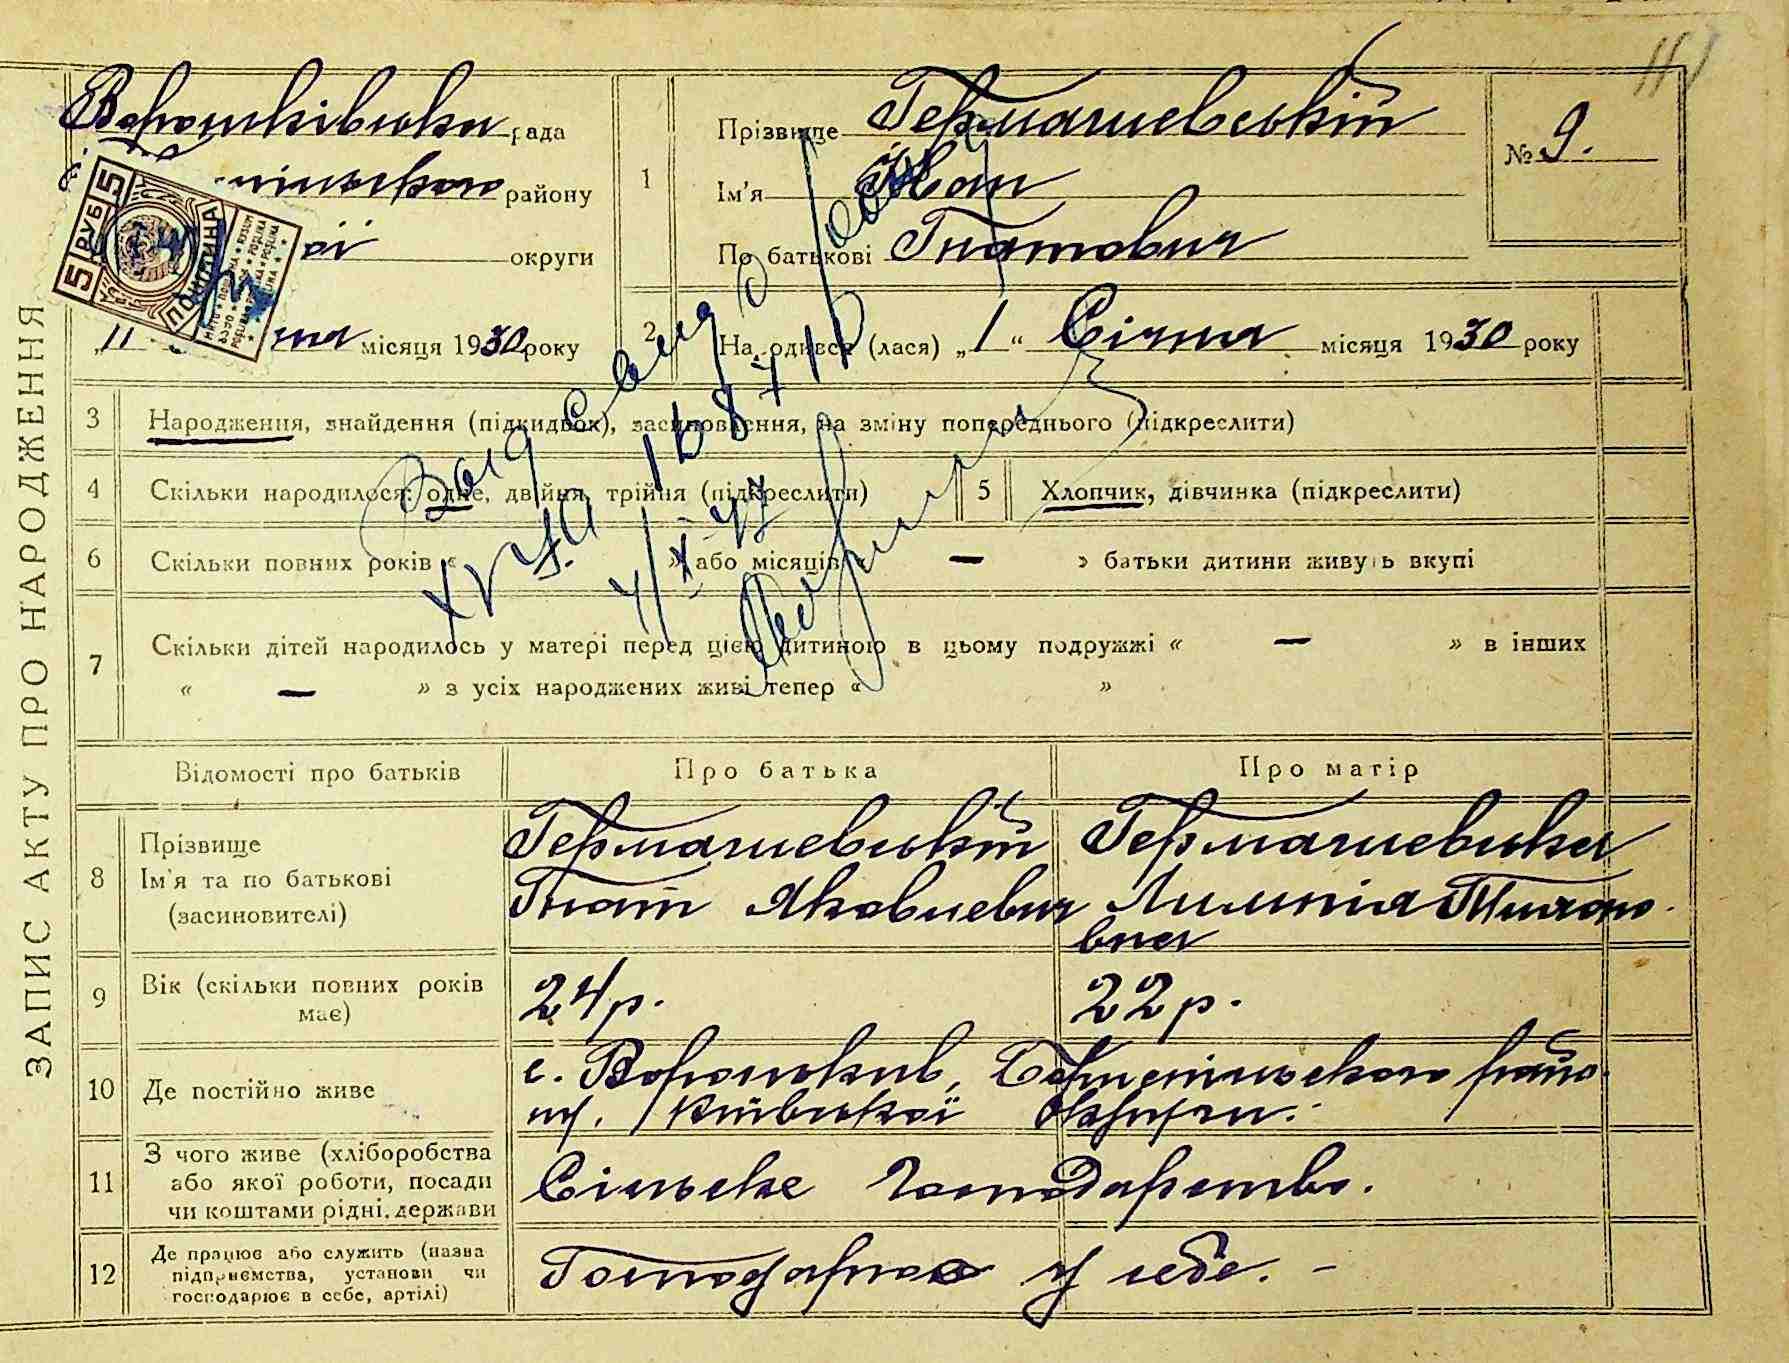 ЗАПИС АКТУ ПРО НАРОДЖЕННЯ
Вороньківська рада
району
округи
5 РУБ 5
ПОШЛИНА
"11" місяця 1930 року
1
Прізвище Гермашевський
Ім'я Іван
По батькові Гнатович
№ 9.
2 На одився (лася) „1“ Січня місяця 1930 року
3 Народження, знайдення (підкидьок), засиновлення, на зміну попереднього (підкреслити)
4 Скільки народилося: одне, двійня, трійня (підкреслити)
5 Хлопчик, дівчинка (підкреслити)
6 Скільки повних років « » або місяців « — » батьки дитини живуть вкупі
7 Скільки дітей народилось у матері перед цією дитиною в цьому подружжі « — » в інших
« — » з усіх народжених живі тепер « »
4/X-47
Відомості про батьків Про батька Про матір
8 Прізвище
Ім'я та по батькові
(засиновителі)
Гермашевський
Гнат Яковлевич
Гермашевська
9 Вік (скільки повних років
має)
24 р. 22 р.
10 Де постійно живе
с. Вороньків, Бориспільського райо-
ну. Київської Округи.
11 З чого живе (хліборобства
або якої роботи, посади
чи коштами рідні, держави
Сільське Господарство.
12 Де працює або служить (назва
підприємства, установи чи
господарює в себе, артілі)
у себе. –